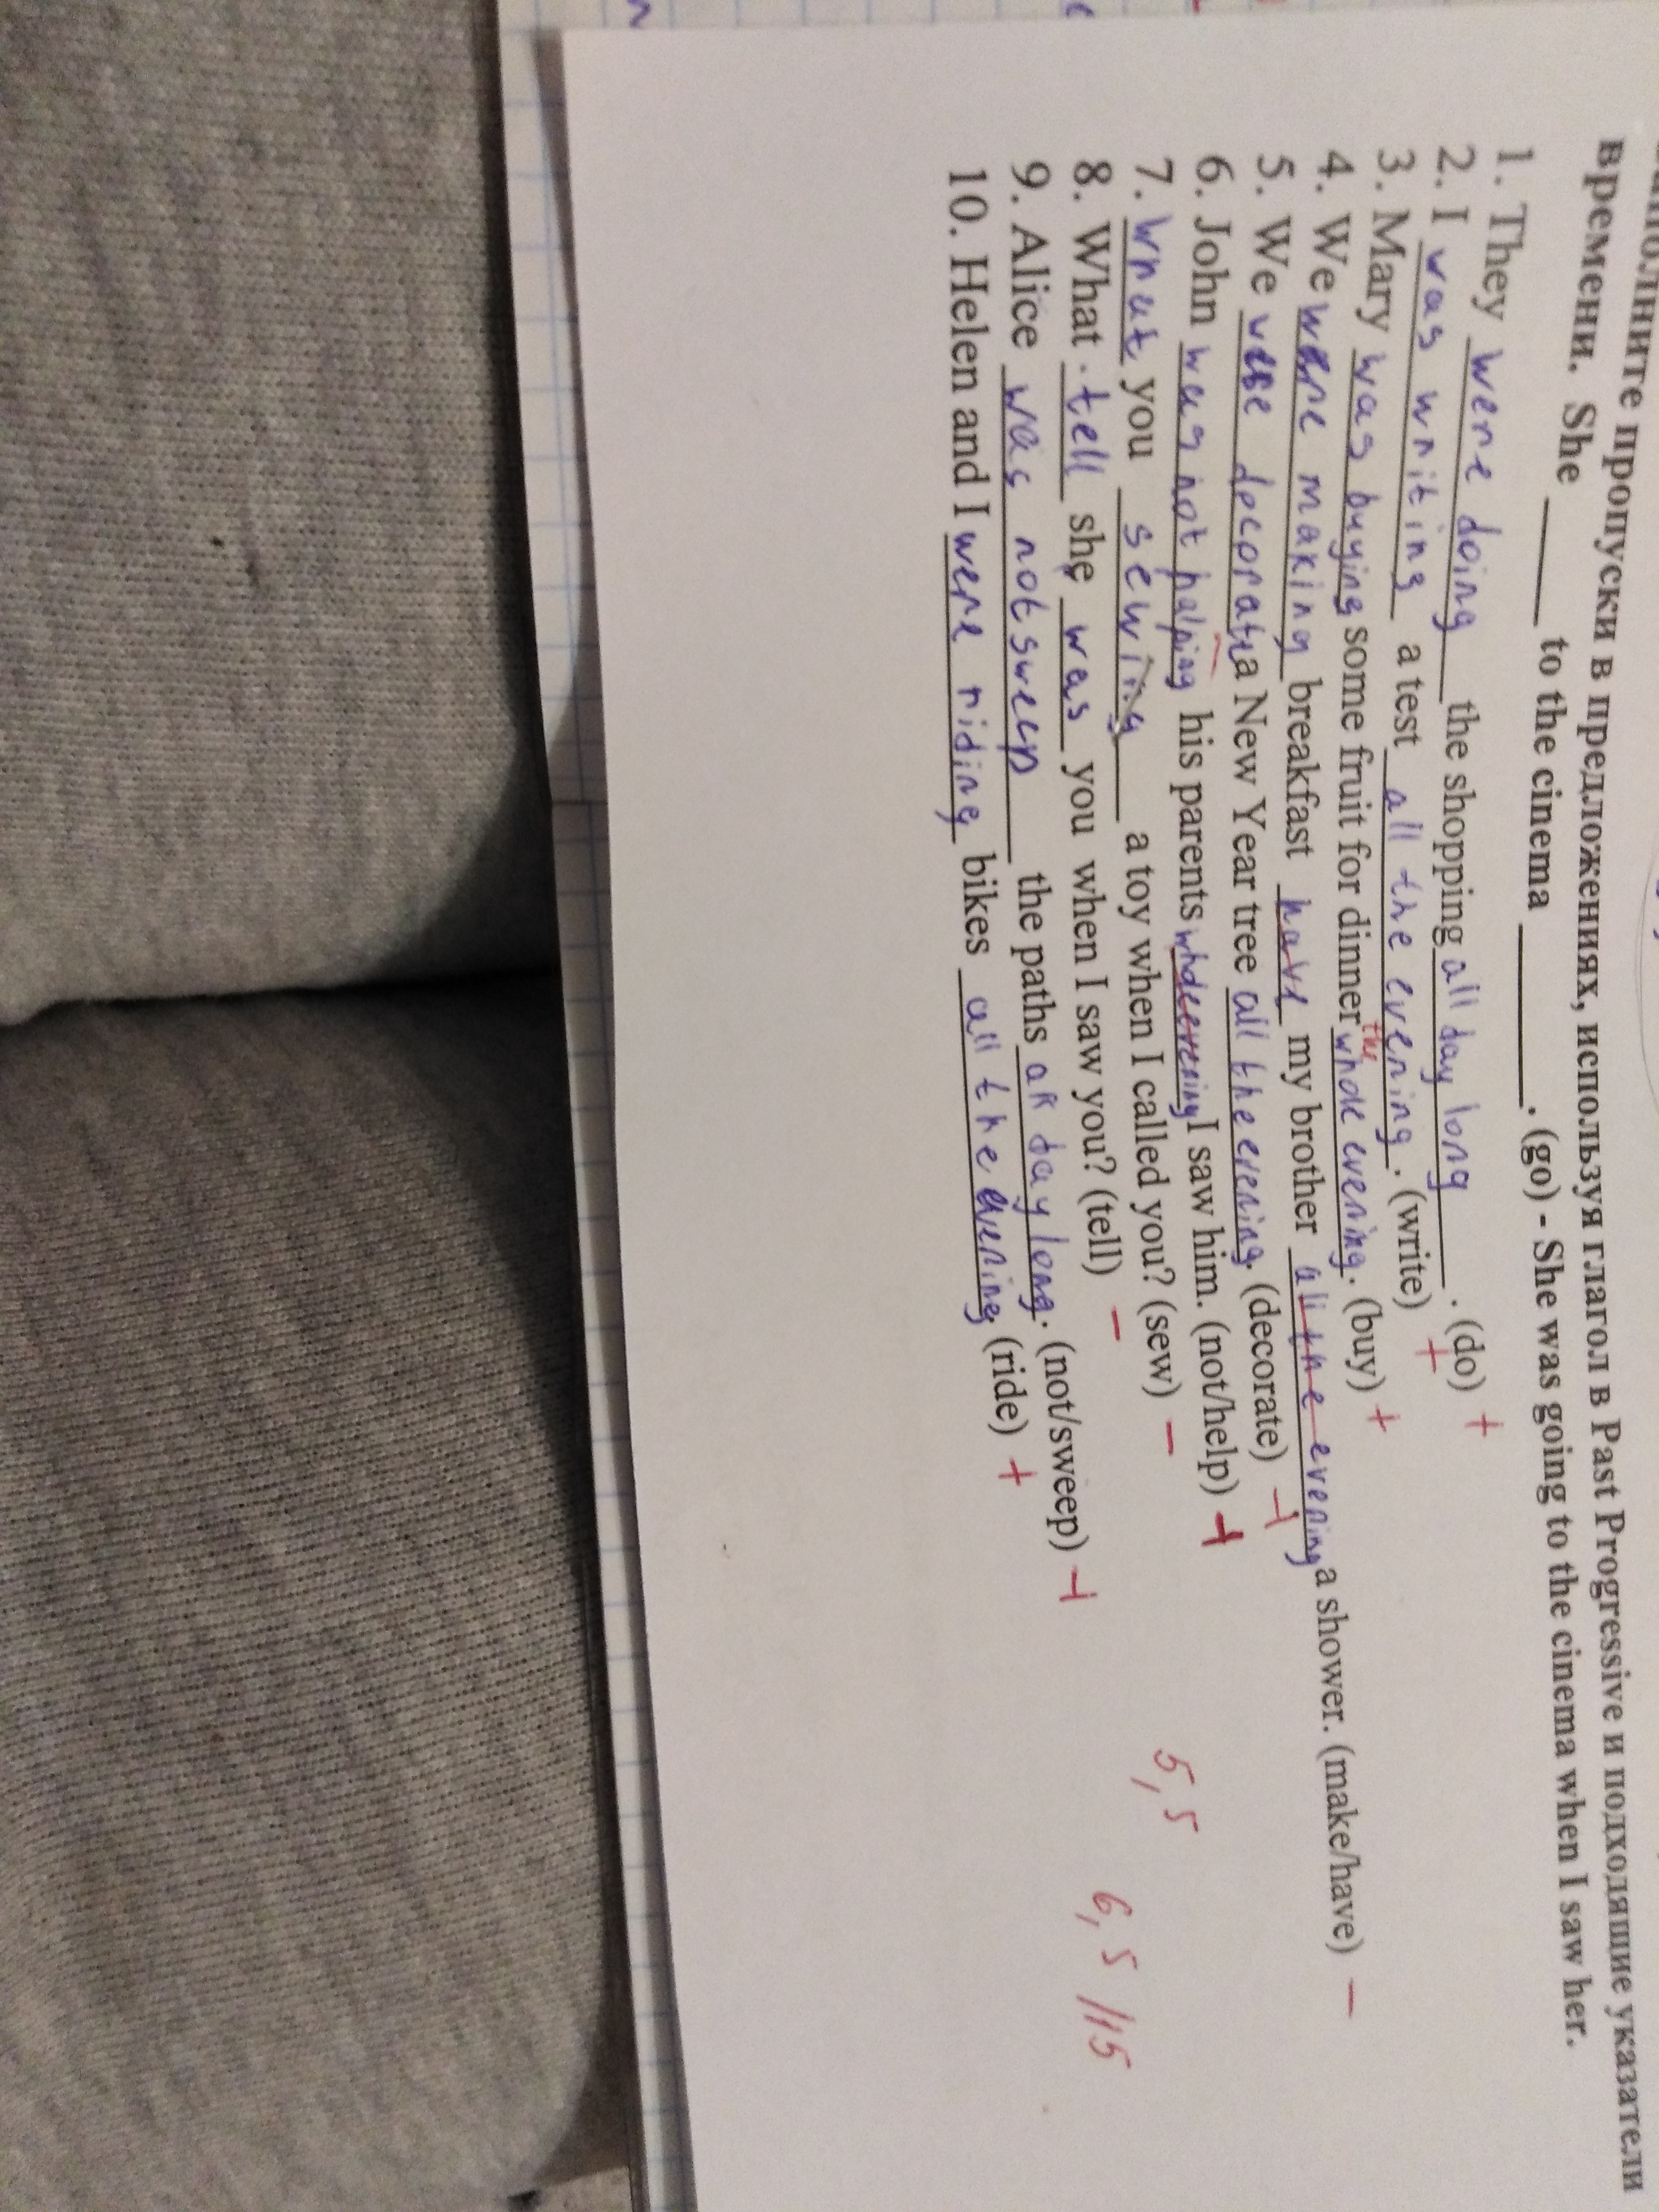 полните пропуски в предложениях, используя глагол в Past Progressive и подходящие указатели
времени. She _____ to the cinema _______. (go) - She was going to the cinema when I saw her.
1. They were doing the shopping all day long. (do) +
2. I was writing a test all the evening. (write) +
3. Mary was buying some fruit for dinner the whole evening. (buy) +
4. We were making breakfast have my brother all the evening a shower. (make/have) –
5. We were decorate a New Year tree all the evening. (decorate) -1
6. John was not halping his parents whole evening I saw him. (not/help) -1
7. What you sewing a toy when I called you? (sew) –
8. What tell she was you when I saw you? (tell) –
9. Alice was not sweep the paths all day long. (not/sweep) -1
10. Helen and I were riding bikes all the evening (ride) +
5,5
6,5/15